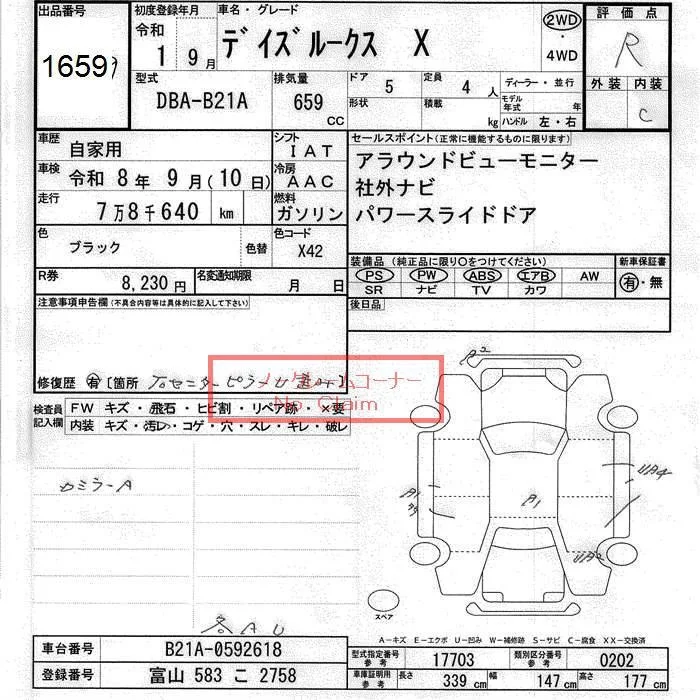 出品番号
1659
初度登録年月
令和
1 9月
車名・グレード
デイズルークス X
2WD
・
4WD
評価点
R
外装 内装
C
型式
DBA-B21A
排気量
659
CC
ドア 5
定員 4 人
形状
積載
kg
ディーラー・並行
モデル年式 年
ハンドル 左・右
車歴
自家用
シフト
IAT
車検 令和 8年 9月(10日)
冷房
AAC
走行
7万8千640 km
燃料
ガソリン
色
ブラック
色替
色コード
X42
R券
8,230円
名変通知期限
月 日
セールスポイント(正常に機能するものに限ります)
アラウンドビューモニター
社外ナビ
パワースライドドア
装備品(純正品に限り〇をつけてください)
PS PW ABS エアB AW
SR ナビ TV カワ
新車保証書
有・無
後日品
注意事項申告欄(不具合内容等は具体的に記入して下さい)
修復歴 有 [箇所
ノークレームコーナー
No. Claim
検査員
記入欄
FW キズ・飛石・ヒビ割・リペア跡・×要
内装 キズ・汚レ・コゲ・穴・スレ・キレ・破レ
カミラーA
各AU
A2
UA4
A1
A1
UA2
スペア
A-キズ E-エクボ U-凹み W-補修跡 S-サビ C-腐食 XX-交換済
車台番号
B21A-0592618
登録番号
富山 583 こ 2758
型式指定番号
参考
17703
類別区分番号
参考
0202
車庫証明用
参考
長さ
339 cm
幅
147 cm
高さ
177 cm